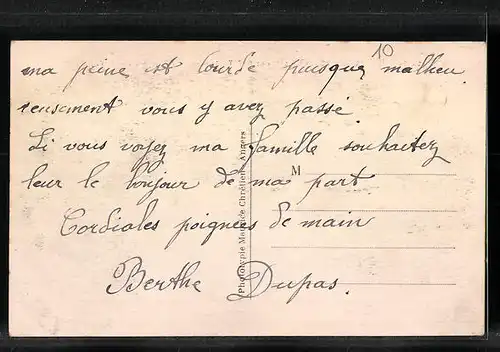 10
ma peine est lourde puisque malheu
reusement vous y avez passé.
Si vous voyez ma famille souhaitez
leur le bonjour de ma part.
Cordiales poignées de main
Berthe Dupas.
M
Phototypie Maurice Chrétien Angers